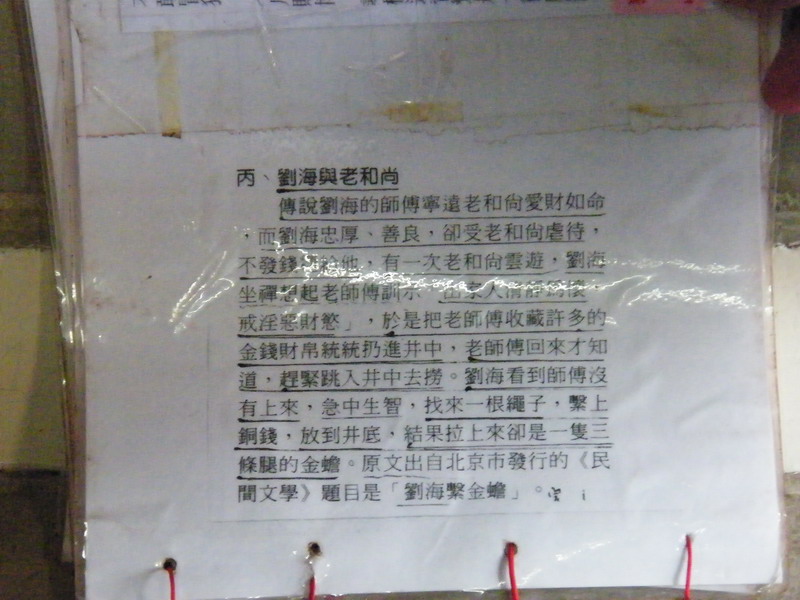 丙、劉海與老和尚
傳說劉海的師傅寧遠老和尚愛財如命
，而劉海忠厚、善良，卻受老和尚虐待，
不發錢給他，有一次老和尚雲遊，劉海
坐禪想起老師傅訓示「出家人清靜為懷，
戒淫惡財慾」，於是把老師傅收藏許多的
金錢財帛統統扔進井中，老師傅回來才知
道，趕緊跳入井中去撈。劉海看到師傅沒
有上來，急中生智，找來一根繩子，繫上
銅錢，放到井底，結果拉上來卻是一隻三
條腿的金蟾。原文出自北京市發行的《民
間文學》題目是「劉海繫金蟾」。